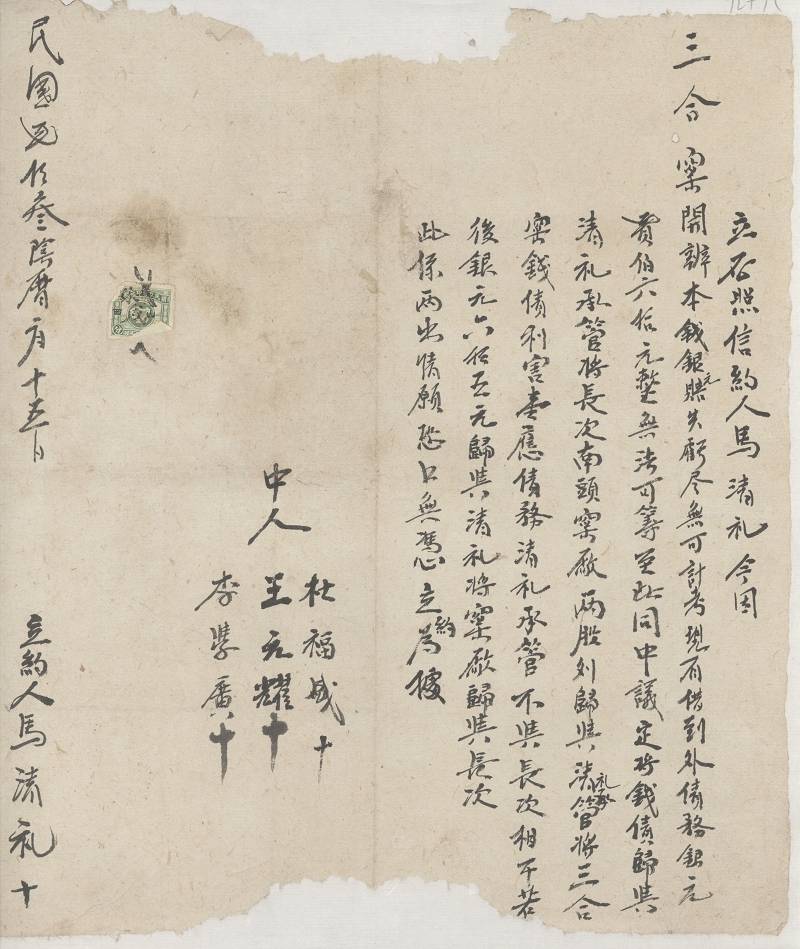 立存照信約人馬清礼今因
三合窯開辦本錢銀元賠失虧尽無可計考現有借到外債務銀元
貳伯六拾元整無法可籌至此同中議定将錢債歸與
清礼承管将長次南頭窯厰兩股列歸與清礼承管将三合
窑錢債利害壹應債務清礼承管不與長次相干若
後銀元六拾五元歸與清礼将窯厰歸與長次
此係兩出情願恐口無憑立約為據
中人
杜福盛十
王元耀十
李學廣十
民國 拾叁陰曆 月十五日
立約人馬清礼十